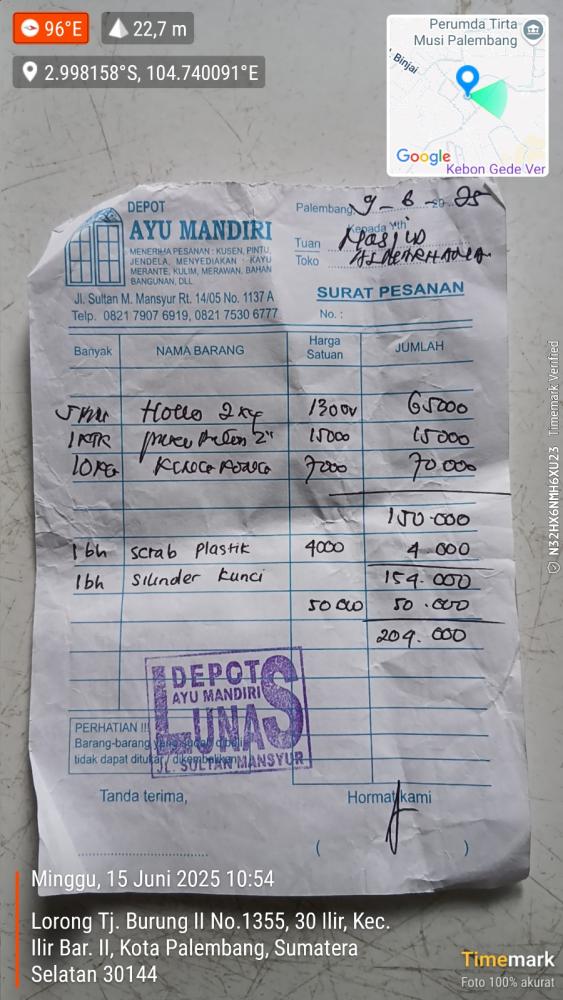 96°E
22,7 m
2.998158°S, 104.740091°E
Perumda Tirta
Musi Palembang
Binjai
Google
Kebon Gede Ver
DEPOT
AYU MANDIRI
MENERIMA PESANAN : KUSEN, PINTU,
JENDELA, MENYEDIAKAN : KAYU
MERANTE, KULIM, MERAWAN, BAHAN
BANGUNAN, DLL
Jl. Sultan M. Mansyur Rt. 14/05 No. 1137 A
Telp. 0821 7907 6919, 0821 7530 6777
Palembang, 9-6-2025
Kepada Yth
Tuan Masjid
Toko
SURAT PESANAN
No. :
Banyak NAMA BARANG Harga Satuan JUMLAH
Hollo 2 kg 13000 65000
1 MTR 2" 15000 15000
10 KG 7000 70000
150.000
1 bh Scrab Plastik 4000 4.000
1 bh Silinder Kunci 154.000
50 000 50.000
204.000
DEPOT
AYU MANDIRI
LUNAS
JL. SULTAN MANSYUR
PERHATIAN !!!
Barang-barang yang sudah dibeli
tidak dapat ditukar / dikembalikan
Tanda terima, Hormat kami
( )
Minggu, 15 Juni 2025 10:54
Lorong Tj. Burung II No.1355, 30 Ilir, Kec.
Ilir Bar. II, Kota Palembang, Sumatera
Selatan 30144
Timemark
Foto 100% akurat
N32HX6NMH6XU23 Timemark Verified